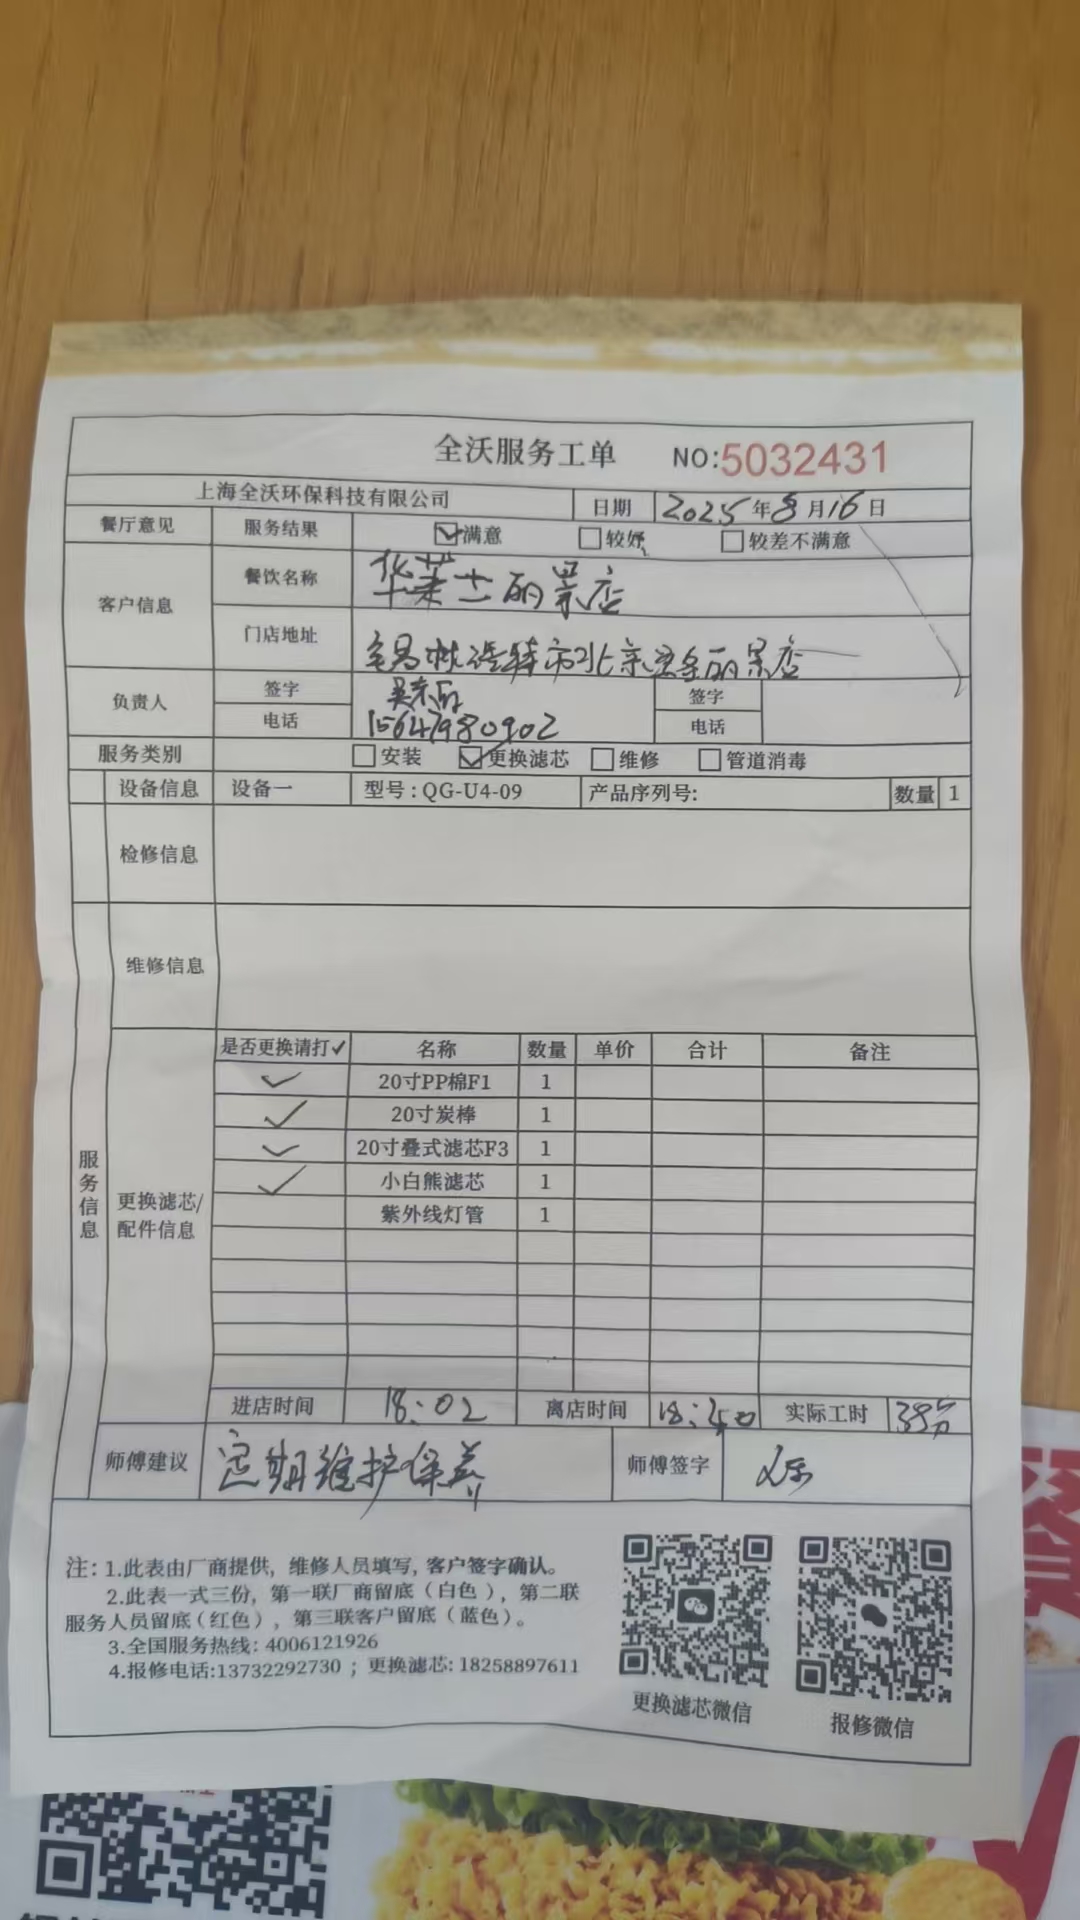 全沃服务工单 NO:5032431
上海全沃环保科技有限公司 日期 2025年8月16日
餐厅意见 服务结果 ☑满意 □较好 □较差不满意
客户信息 餐饮名称 华莱士丽景店
门店地址 锡林浩特市北京 丽景店
负责人 签字 签字
电话 15647980902 电话
服务类别 □安装 ☑更换滤芯 □维修 □管道消毒
设备信息 设备一 型号:QG-U4-09 产品序列号: 数量 1
检修信息
维修信息
服务信息
更换滤芯/配件信息
是否更换请打✓ 名称 数量 单价 合计 备注
✓ 20寸PP棉F1 1
✓ 20寸炭棒 1
✓ 20寸叠式滤芯F3 1
✓ 小白熊滤芯 1
紫外线灯管 1
进店时间 18:02 离店时间 18:40 实际工时 38分
师傅建议 定期维护保养 师傅签字
注: 1.此表由厂商提供，维修人员填写, 客户签字确认。
2.此表一式三份，第一联厂商留底（白色），第二联
服务人员留底(红色），第三联客户留底（蓝色）。
3.全国服务热线: 4006121926
4.报修电话:13732292730 ；更换滤芯: 18258897611
更换滤芯微信 报修微信